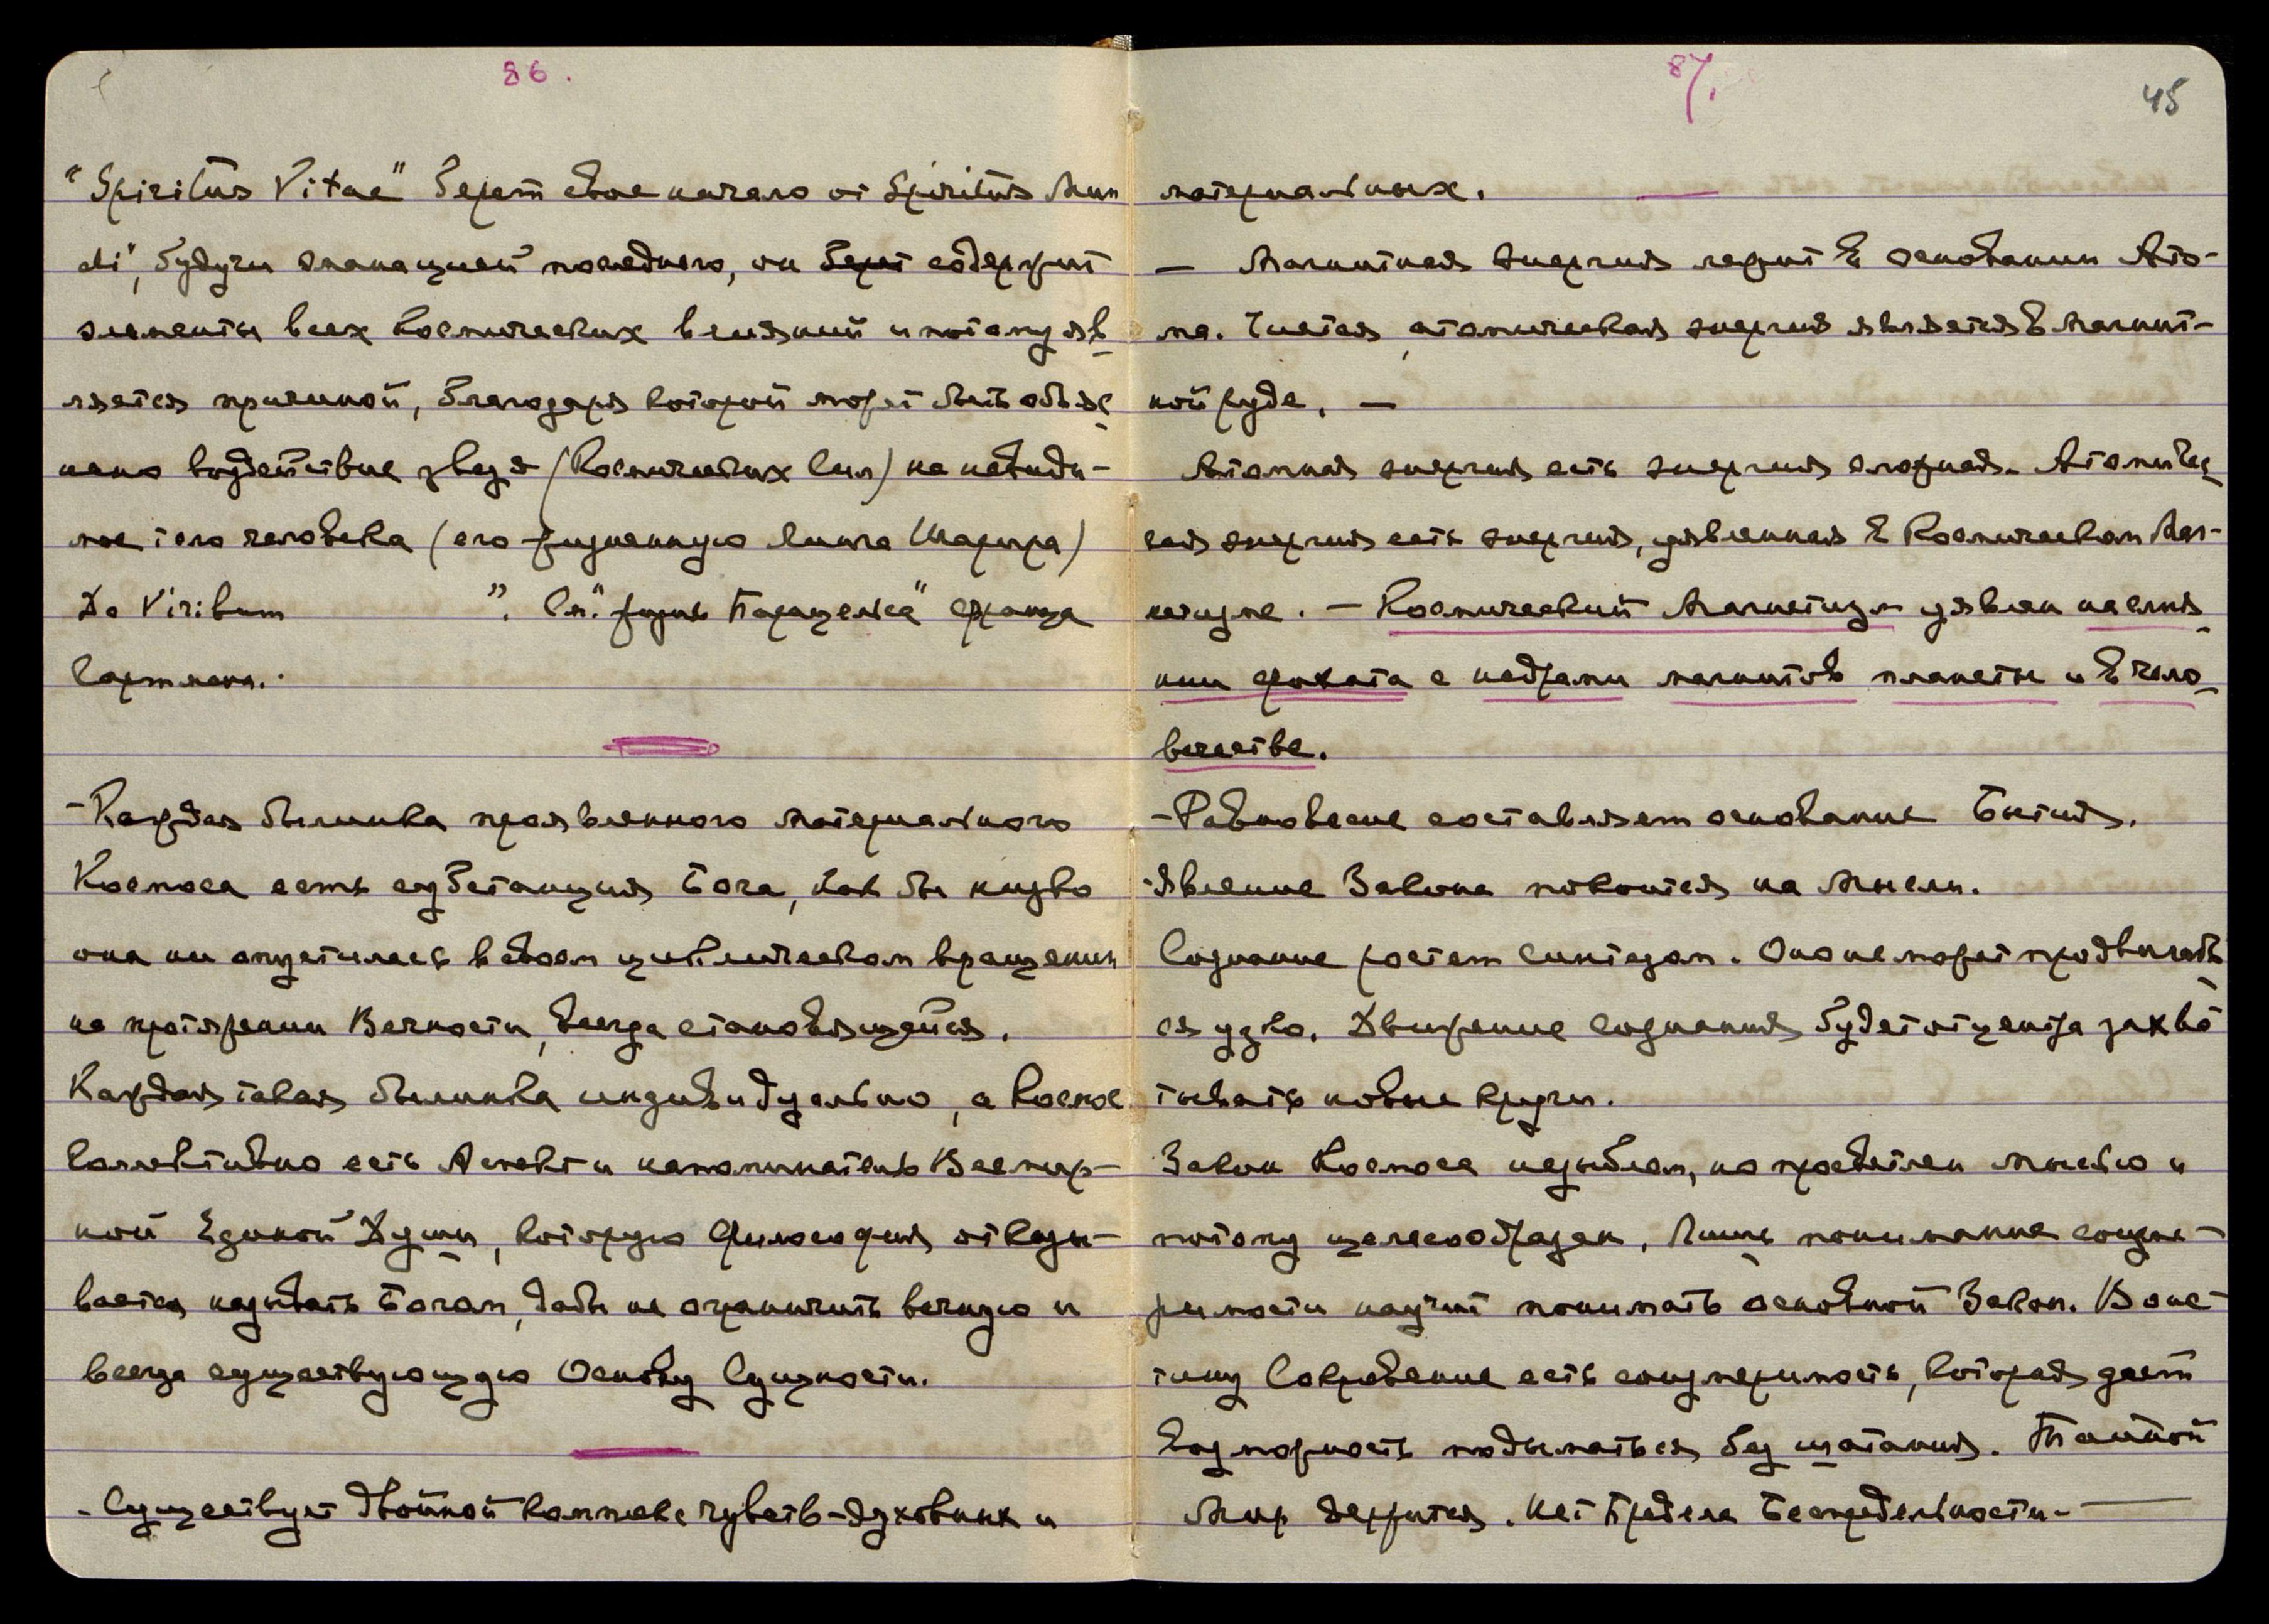 86.
"Spiritus Vitae" берет свое начало от Spiritus Mun
di", будучи эманацией последнего, он берет содержит
элементы всех Космических влияний и потому яв
ляется причиной, благодаря которой может быть объяс
нено воздействие звезд (Космических Сил) на невиди-
мое тело человека (его жизненную Линга Шарира)
De Viribum ". См." жизнь Парацельса" Франца
Гартмана.
-Каждая былинка проявленного материального
Космоса есть субстанция Бога, как бы низко
она ни опустилась в своем циклическом вращении
на протяжении Вечности, всегда становящейся.
Каждая такая былинка индивидуально, а Космос
Коллективно есть Аспект и напоминатель Всемир-
ной Единой Души, которую Философия отказы-
вается называть Богом, дабы не ограничить вечную и
всегда существующую Основу Сущности.
- Существует двойной комплекс чувств-духовных и
87.
45
материальных.
— Магнитная энергия лежит в основании Ато-
ма. Чистая атомическая энергия является в Магнит-
ной руде. —
Атомная энергия есть энергия сложная. Атомичес
кая энергия есть энергия, явленная в Космическом Маг-
нетизме. — Космический Магнетизм явлен в слия
нии фохата с недрами магнитов планеты и в чело
вечестве.
-Равновесие составляет основание Бытия.
-Явление Закона покоится на Мысли.
Сознание растет синтезом. Оно не может продвигать
ся узко. Движение сознания будет от центра захва
тывать новые круги.
Закон Космоса незыблем, но просветлен мыслью и
потому целесообразен, Лишь понимание соизме-
римости научит понимать основной Закон. Воис-
тину Сокровение есть соизмеримость, которая дает
возможность подыматься без шатания. Тайной
Мир держится. Нет Предела Беспредельности.—